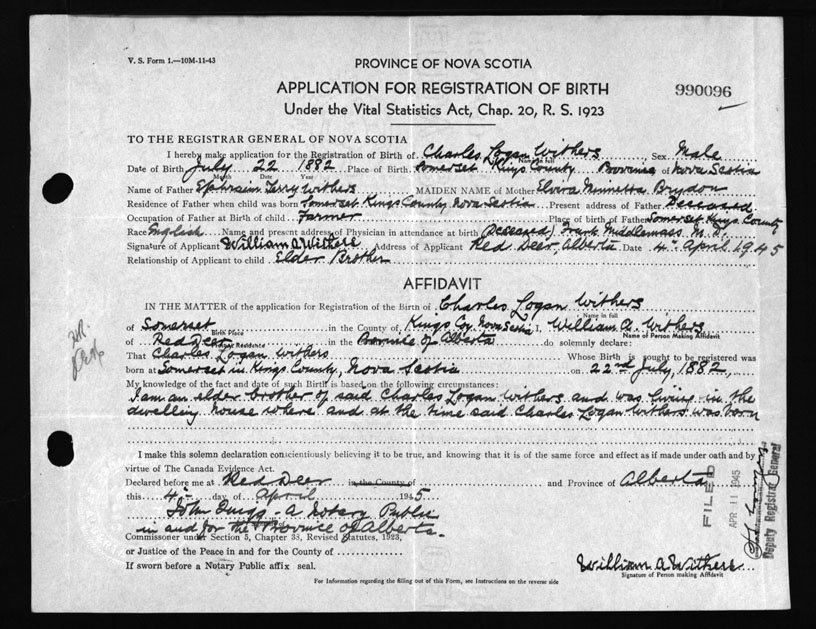 V. S. Form 1.—10M-11-43
PROVINCE OF NOVA SCOTIA
APPLICATION FOR REGISTRATION OF BIRTH
990096
Under the Vital Statistics Act, Chap. 20, R. S. 1923
TO THE REGISTRAR GENERAL OF NOVA SCOTIA
I hereby make application for the Registration of Birth of Charles Logan Withers Sex Male
Name in full
Date of Birth July 22 1882 Place of Birth Somerset Kings County Province of Nova Scotia
Month Date Year
Name of Father Ephraim Terry Withers MAIDEN NAME of Mother Elvira Brydon
Residence of Father when child was born Somerset Kings County, Nova Scotia Present address of Father Deceased
Occupation of Father at Birth of child Farmer Place of birth of Father Somerset, Kings County
Race English Name and present address of Physician in attendance at birth (Deceased) Frank Middlemass M. D.
Signature of Applicant William A Withers Address of Applicant Red Deer, Alberta Date 4" April 1945
Relationship of Applicant to child Elder Brother
AFFIDAVIT
IN THE MATTER of the application for Registration of the Birth of Charles Logan Withers
Name in full
of Somerset in the County of Kings Coy. Nova Scotia I, William A. Withers
Birth Place Name of Person Making Affidavit
of Red Deer in the Province of Alberta do solemnly declare:
Residence
That Charles Logan Withers Whose Birth is sought to be registered was
born at Somerset in Kings County, Nova Scotia on 22nd July, 1882
My knowledge of the fact and date of such Birth is based on the following circumstances:
I am an elder brother of said Charles Logan Withers and was living in the
dwelling house where and at the time said Charles Logan Withers was born
I make this solemn declaration conscientiously believing it to be true, and knowing that it is of the same force and effect as if made under oath and by
virtue of The Canada Evidence Act.
Declared before me at Red Deer in the County of and Province of Alberta
this 4" day of April 1945
John Quigg - a Notary Public
in and for the Province of Alberta.
Commissioner under Section 5, Chapter 38, Revised Statutes, 1923,
or Justice of the Peace in and for the County of
If sworn before a Notary Public affix seal.
William A Withers
Signature of Person making Affidavit
For Information regarding the filling out of this Form, see Instructions on the reverse side
FILED
APR 11 1945
Deputy Registrar General